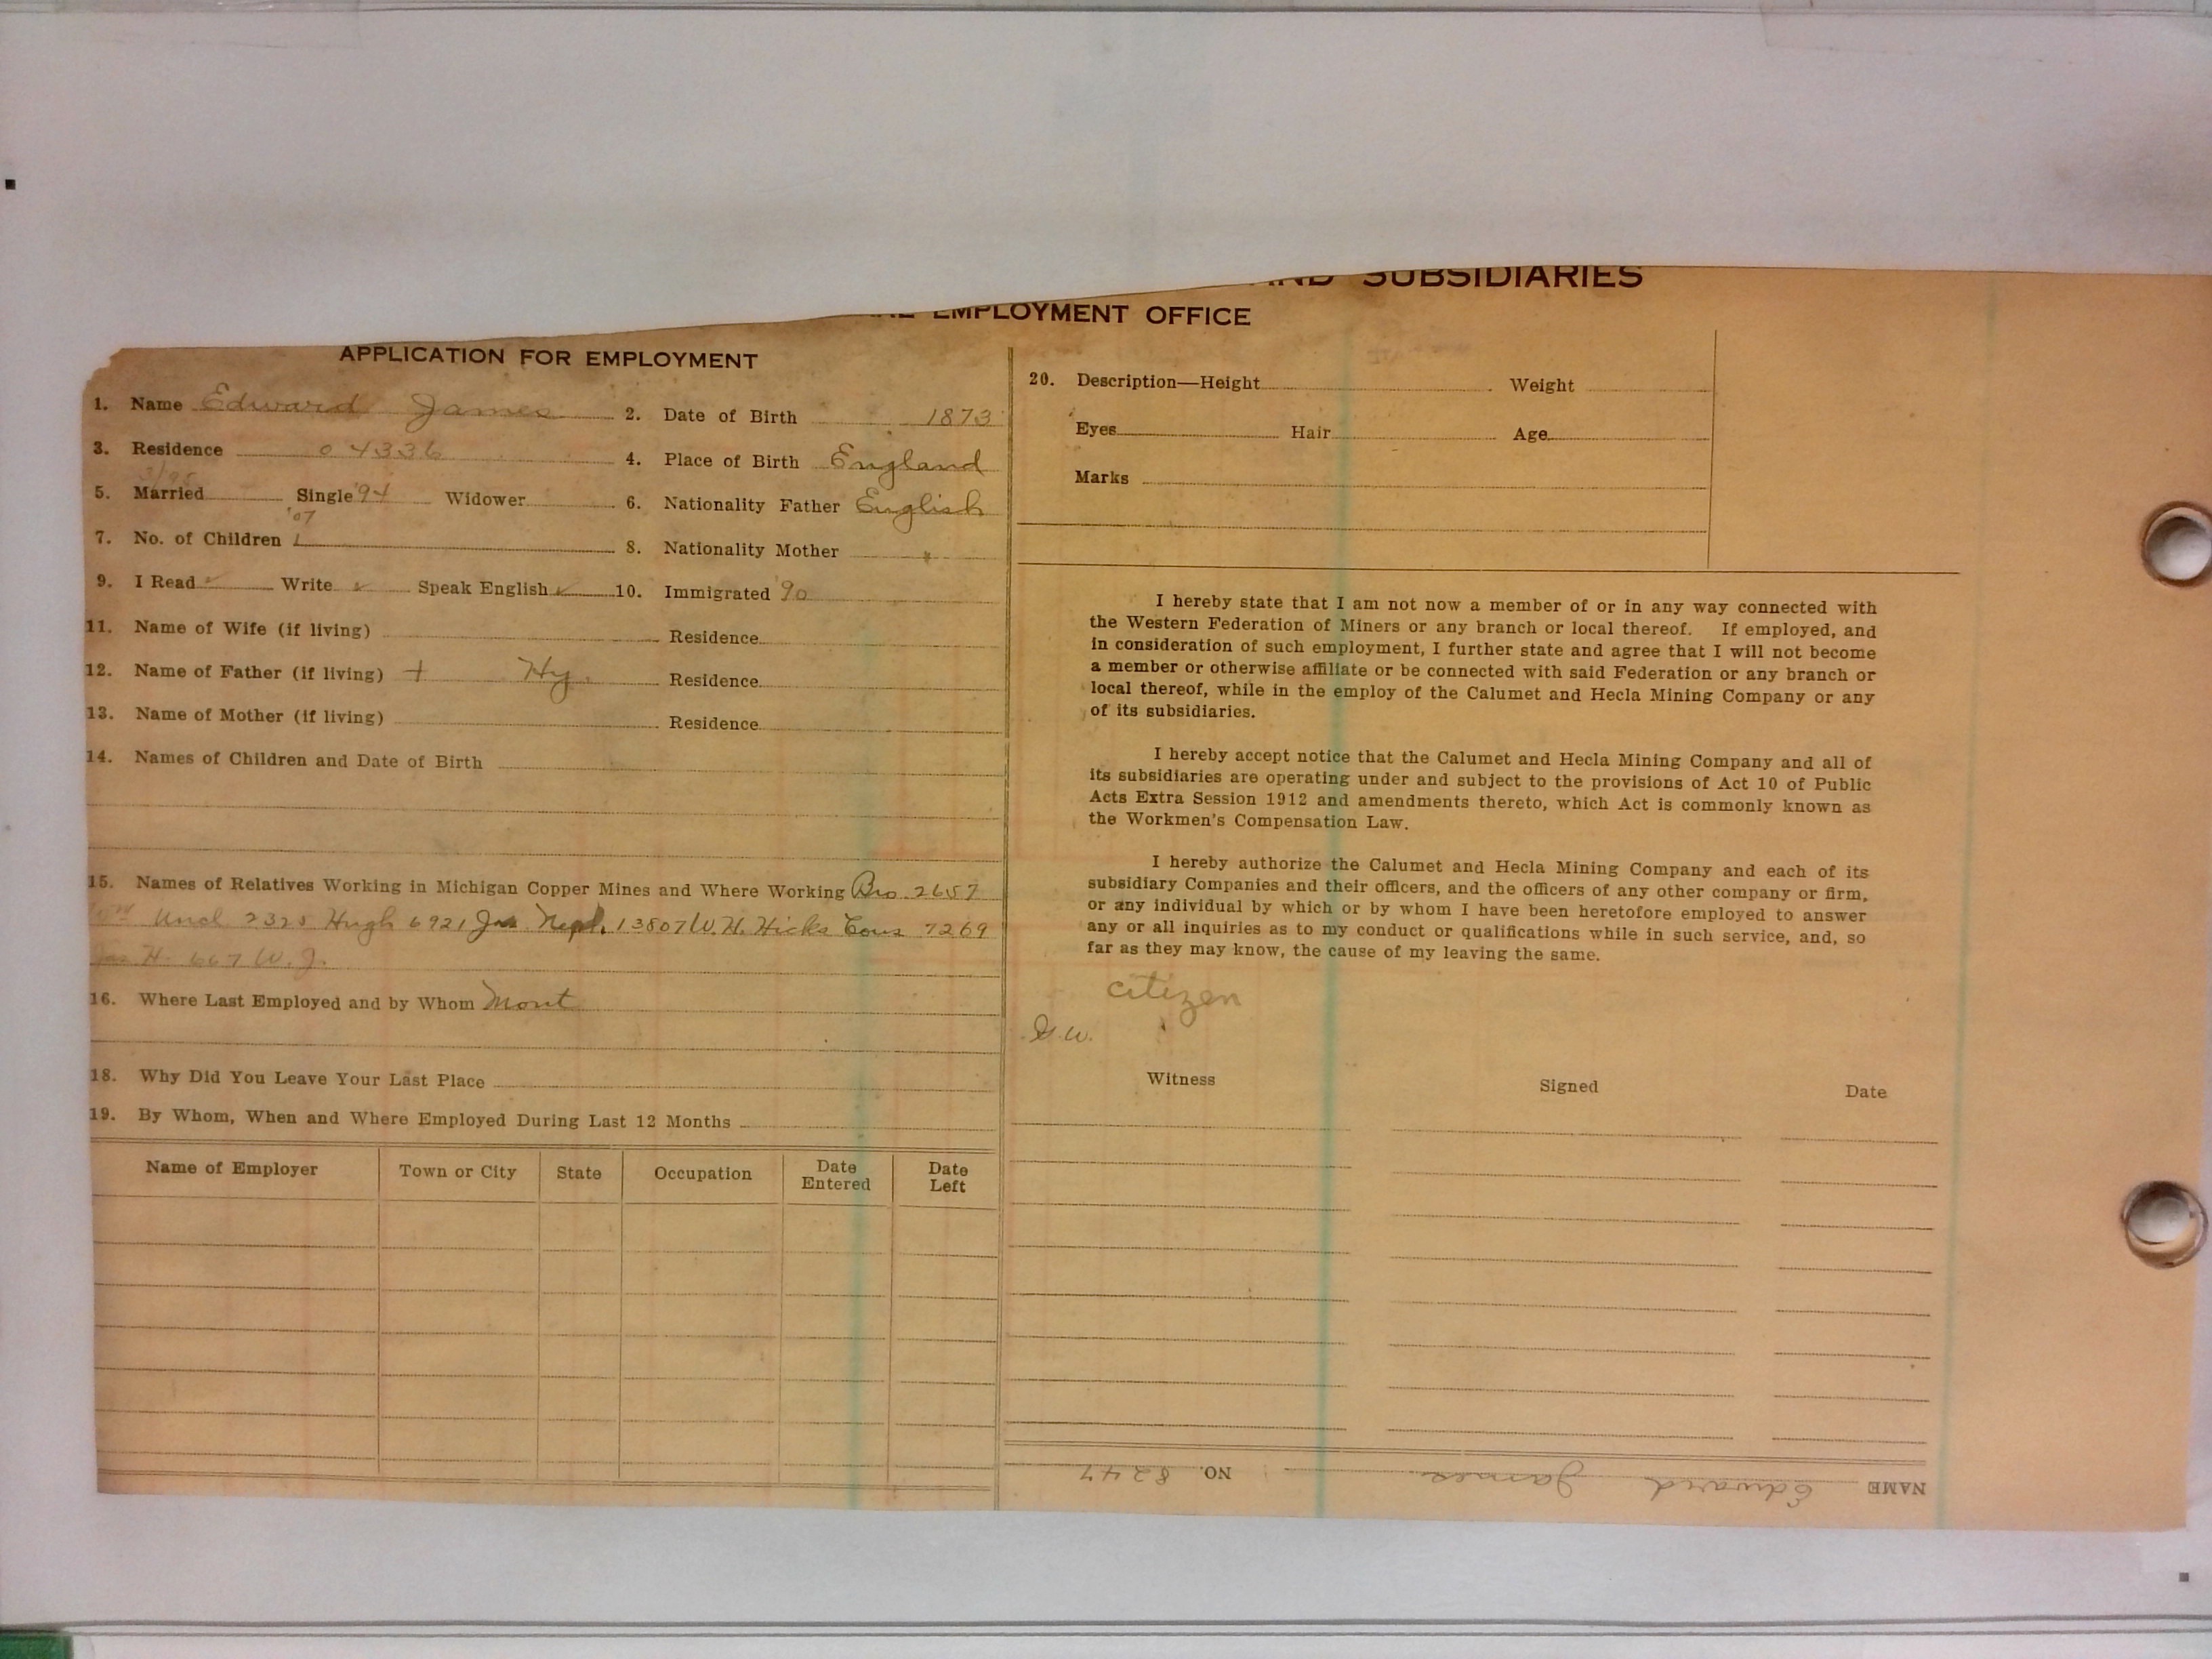 AND SUBSIDIARIES
EMPLOYMENT OFFICE
APPLICATION FOR EMPLOYMENT
1. Name Edward James 2. Date of Birth 1873
3. Residence 04336 4. Place of Birth England
5. Married 3/95 Single '94 Widower 6. Nationality Father English
7. No. of Children '07 1 8. Nationality Mother "
9. I Read ✓ Write ✓ Speak English ✓ 10. Immigrated '90
11. Name of Wife (if living) Residence
12. Name of Father (if living) + Hy. Residence
13. Name of Mother (if living) Residence
14. Names of Children and Date of Birth
15. Names of Relatives Working in Michigan Copper Mines and Where Working Bro. 2657
Uncl 2325 Hugh 6921 Jas. Neph. 13807 W. H. Hicks Cous 7269
Jas H. 667 W. J.
16. Where Last Employed and by Whom Mont
18. Why Did You Leave Your Last Place
19. By Whom, When and Where Employed During Last 12 Months
Name of Employer Town or City State Occupation Date Entered Date Left
20. Description—Height Weight
Eyes Hair Age
Marks
I hereby state that I am not now a member of or in any way connected with
the Western Federation of Miners or any branch or local thereof. If employed, and
in consideration of such employment, I further state and agree that I will not become
a member or otherwise affiliate or be connected with said Federation or any branch or
local thereof, while in the employ of the Calumet and Hecla Mining Company or any
of its subsidiaries.
I hereby accept notice that the Calumet and Hecla Mining Company and all of
its subsidiaries are operating under and subject to the provisions of Act 10 of Public
Acts Extra Session 1912 and amendments thereto, which Act is commonly known as
the Workmen's Compensation Law.
I hereby authorize the Calumet and Hecla Mining Company and each of its
subsidiary Companies and their officers, and the officers of any other company or firm,
or any individual by which or by whom I have been heretofore employed to answer
any or all inquiries as to my conduct or qualifications while in such service, and, so
far as they may know, the cause of my leaving the same.
citizen
G. W.
Witness Signed Date
NAME Edward James NO. 8247